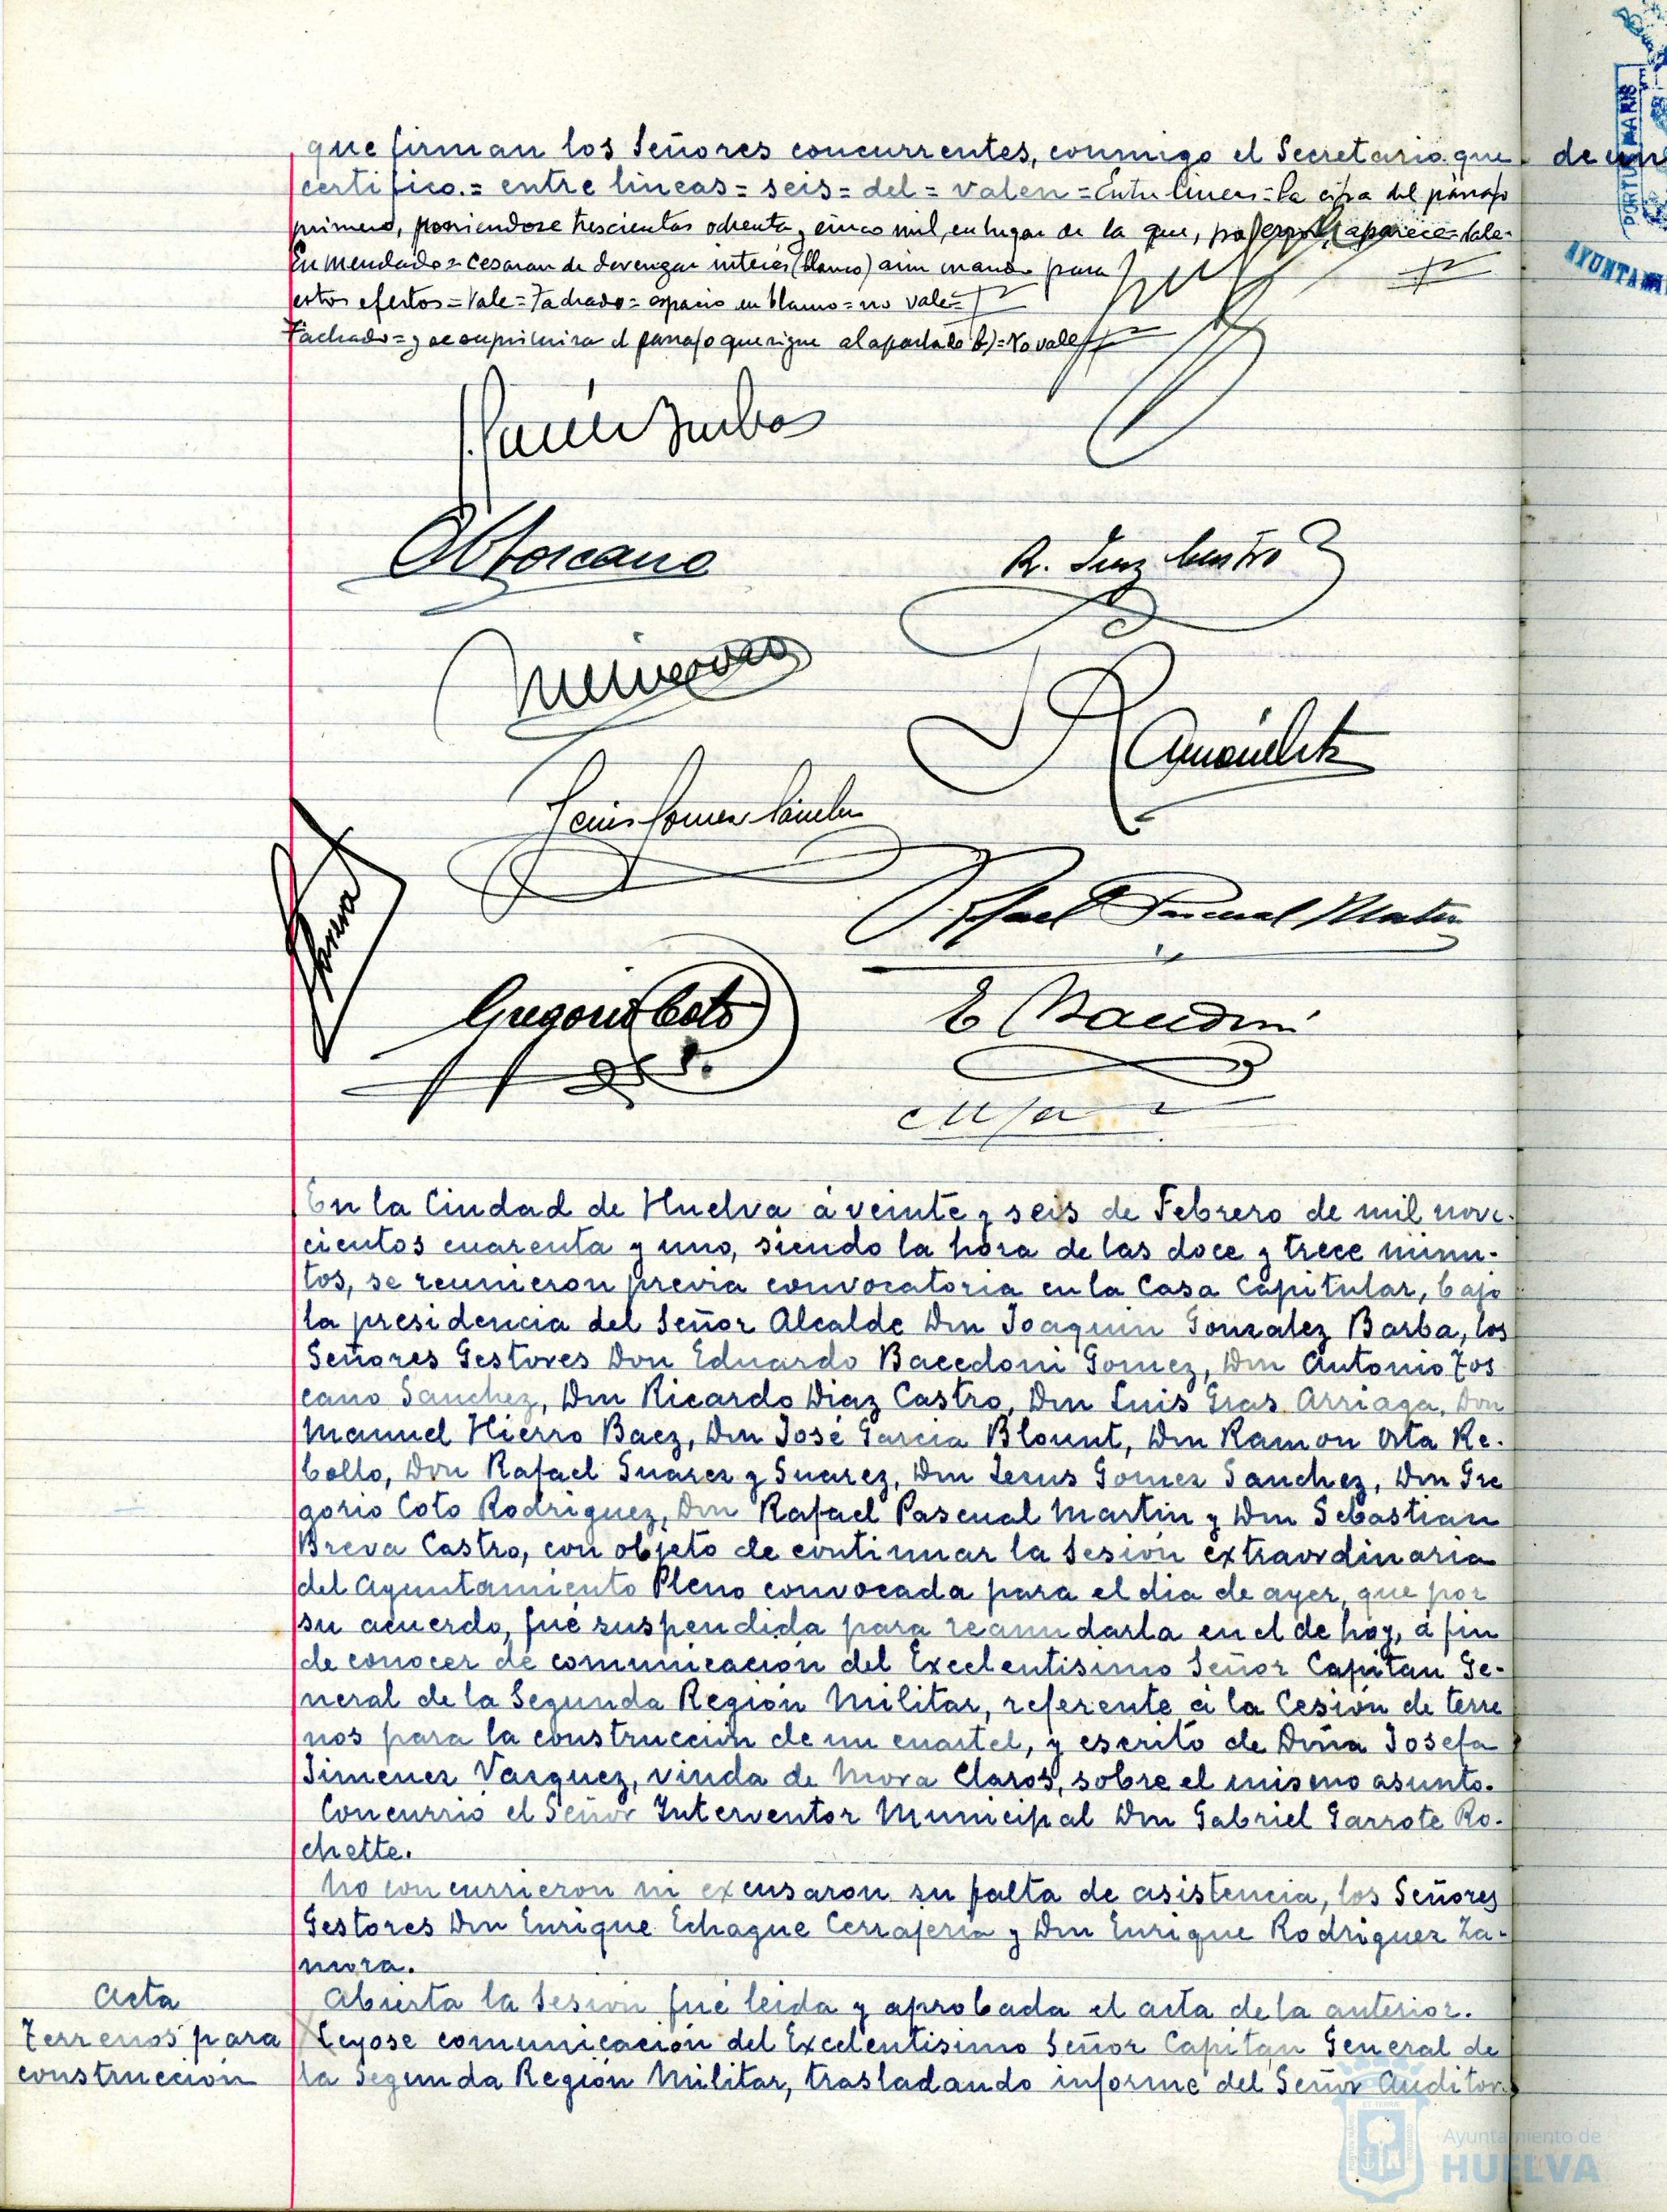 que firman los Señores concurrentes, conmigo el Secretario que
certifico.= entre lineas= seis= del= valen= Entre lineas= la cifra del párrafo
primero, poniendose trescientas ochenta y cinco mil, en lugar de la que, por error, aparece= Vale=
Enmendado= cesaran de devengar interés (blanco) para
estos efectos= Vale= Tachado= espacio en blanco= no vale=
Tachado= y se suprimira el parrafo que sigue al apartado b)= No vale
Abtoscano
R. Diaz Castro
Jesus Gomez Sanchez
Rafael Pascual Martin
Gregorio Coto
En la Ciudad de Huelva á veinte y seis de Febrero de mil nove-
cientos cuarenta y uno, siendo la hora de las doce y trece minu-
tos, se reunieron previa convocatoria en la Casa Capitular, bajo
la presidencia del Señor Alcalde Don Joaquin Gonzalez Barba, los
Señores Gestores Don Eduardo Bacedoni Gomez, Don Antonio Tos
cano Sanchez, Don Ricardo Diaz Castro, Don Luis Gras Arriaga, Don
Manuel Hierro Baez, Don José Garcia Blount, Don Ramon Orta Re-
bollo, Don Rafael Suarez y Suarez, Don Jesus Gomez Sanchez, Don Gre
gorio Coto Rodriguez, Don Rafael Pascual Martin y Don Sebastian
Breva Castro, con objeto de continuar la Sesión extraordinaria
del Ayuntamiento Pleno convocada para el dia de ayer, que por
su acuerdo, fué suspendida para reanudarla en el de hoy, á fin
de conocer de comunicación del Excelentisimo Señor Capitan Ge-
neral de la Segunda Región Militar, referente á la Cesión de terre
nos para la construcción de un cuartel, y escrito de Doña Josefa
Jimenez Vazquez, viuda de Mora Claros, sobre el mismo asunto.
Concurrió el Señor Interventor Municipal Don Gabriel Garrote Ro-
chette.
No concurrieron ni excusaron su falta de asistencia, los Señores
Gestores Don Enrique Echague Cerrajeria y Don Enrique Rodriguez Za-
mora.
Acta
Abierta la Sesión fué leida y aprobada el acta de la anterior.
Terrenos para
Leyose comunicación del Excelentisimo Señor Capitan General de
construcción
la Segunda Región Militar, trasladando informe del Señor Auditor
de un
PORTUS MARIS
AYUNTAM
Ayuntamiento de
HUELVA